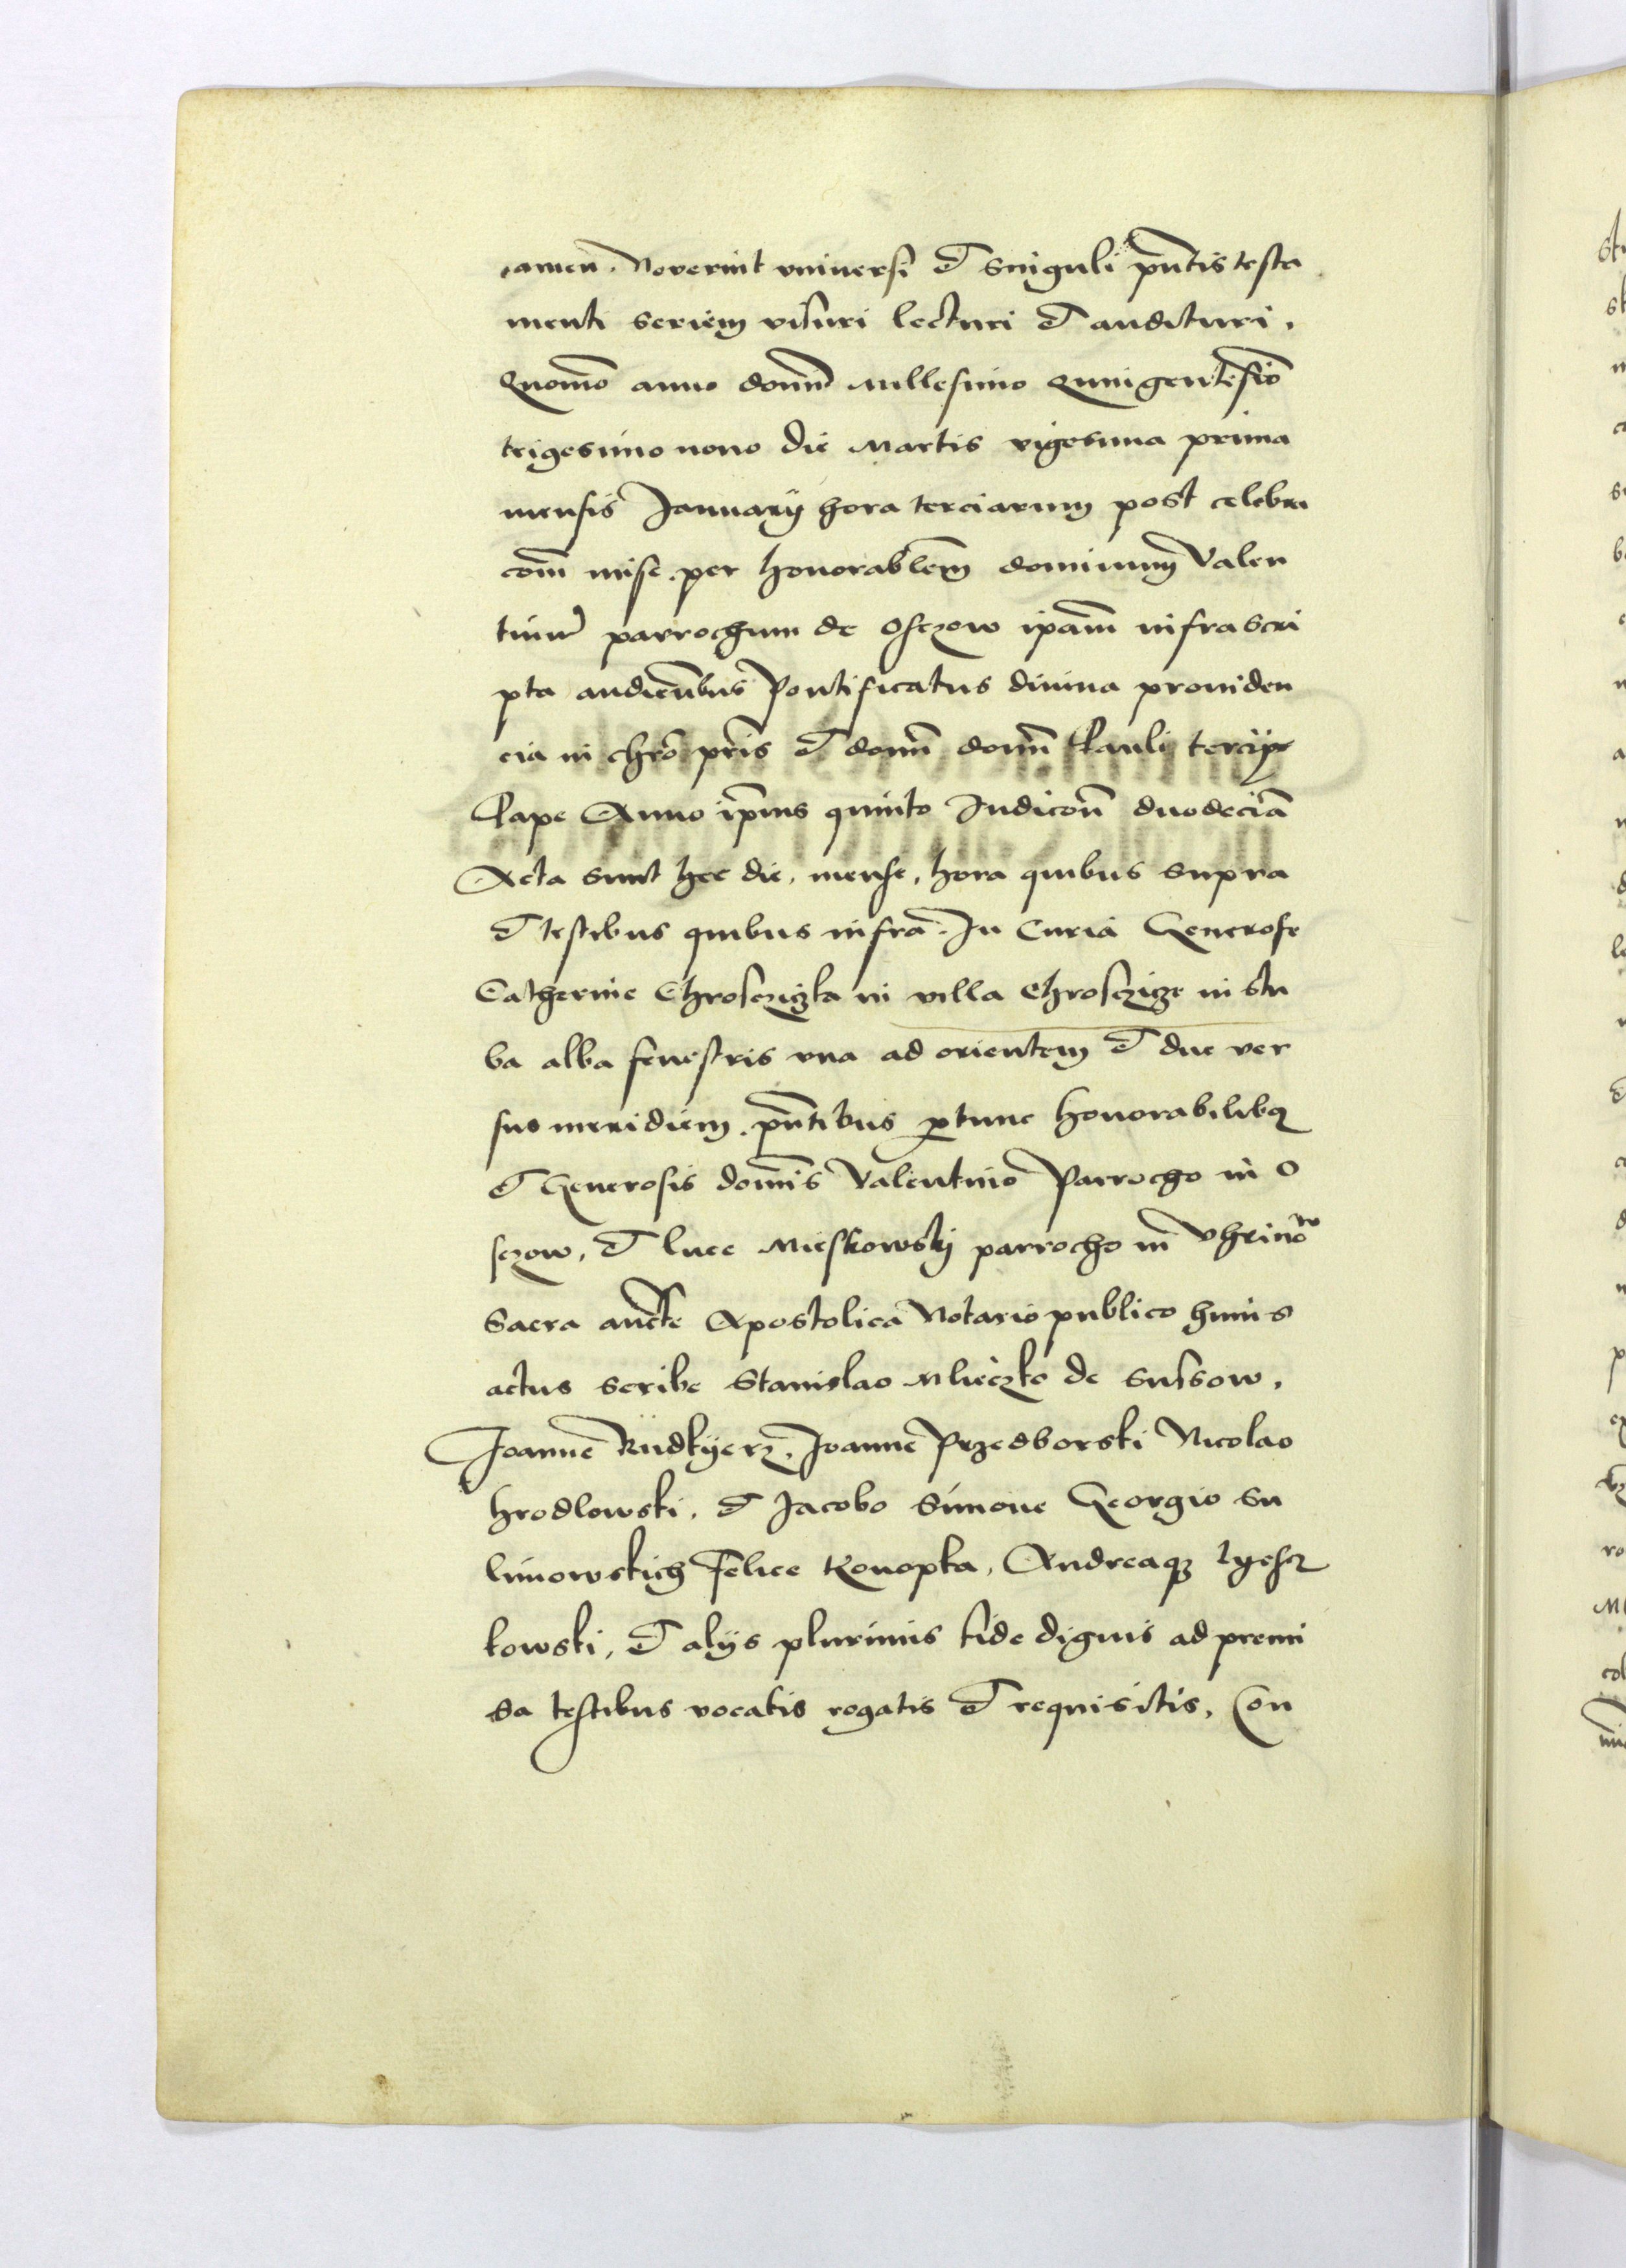 amen. Noverint vniversi et singuli pn̄tis testa
menti seriem visuri lecturi et audituri.
Quomō anno domī Millesimo Quingentesiō
trigesimo nono die Martis vigesima prima
mensis Januarÿ hora terciarum post celebra
cōm mise. per honorablēm dominum Valen
tinum parrochum de Osczow ipām infrascri
pta audientibus Pontificatus divina providen
cia in chrō prīs et domī domī Pauli tercÿ
Pape Anno ipīus quinto Indicōn duodeciā
Acta sunt hec die, mense, hora quibus supra
et testibus quibus infra. In Curia Generose
Catherine Chroscziczka in villa Chrosczicze in stu
ba alba fenestris vna ad orientem et due ver
sus meridiem. pn̄tibus ꝓtunc honorabilibꝫ
et Generosis domīs Valentino Parrocho in O
sczow, et luce Mieskowskÿ parrocho in Vhrinow
Sacra aucte Apostolica Notario publico huius
actus scribe Stanislao Mlieczko de Sussow,
Joanne Rudkÿerz, Joanne Przedborski Nicolao
hrodlowski, et Jacobo Simone Georgio Su
limowskich Felice Konopka, Andreaqꝫ lyesz
kowski, et alÿs plurimis fide dignis ad premi
sa testibus vocatis rogatis et requisitis, Con